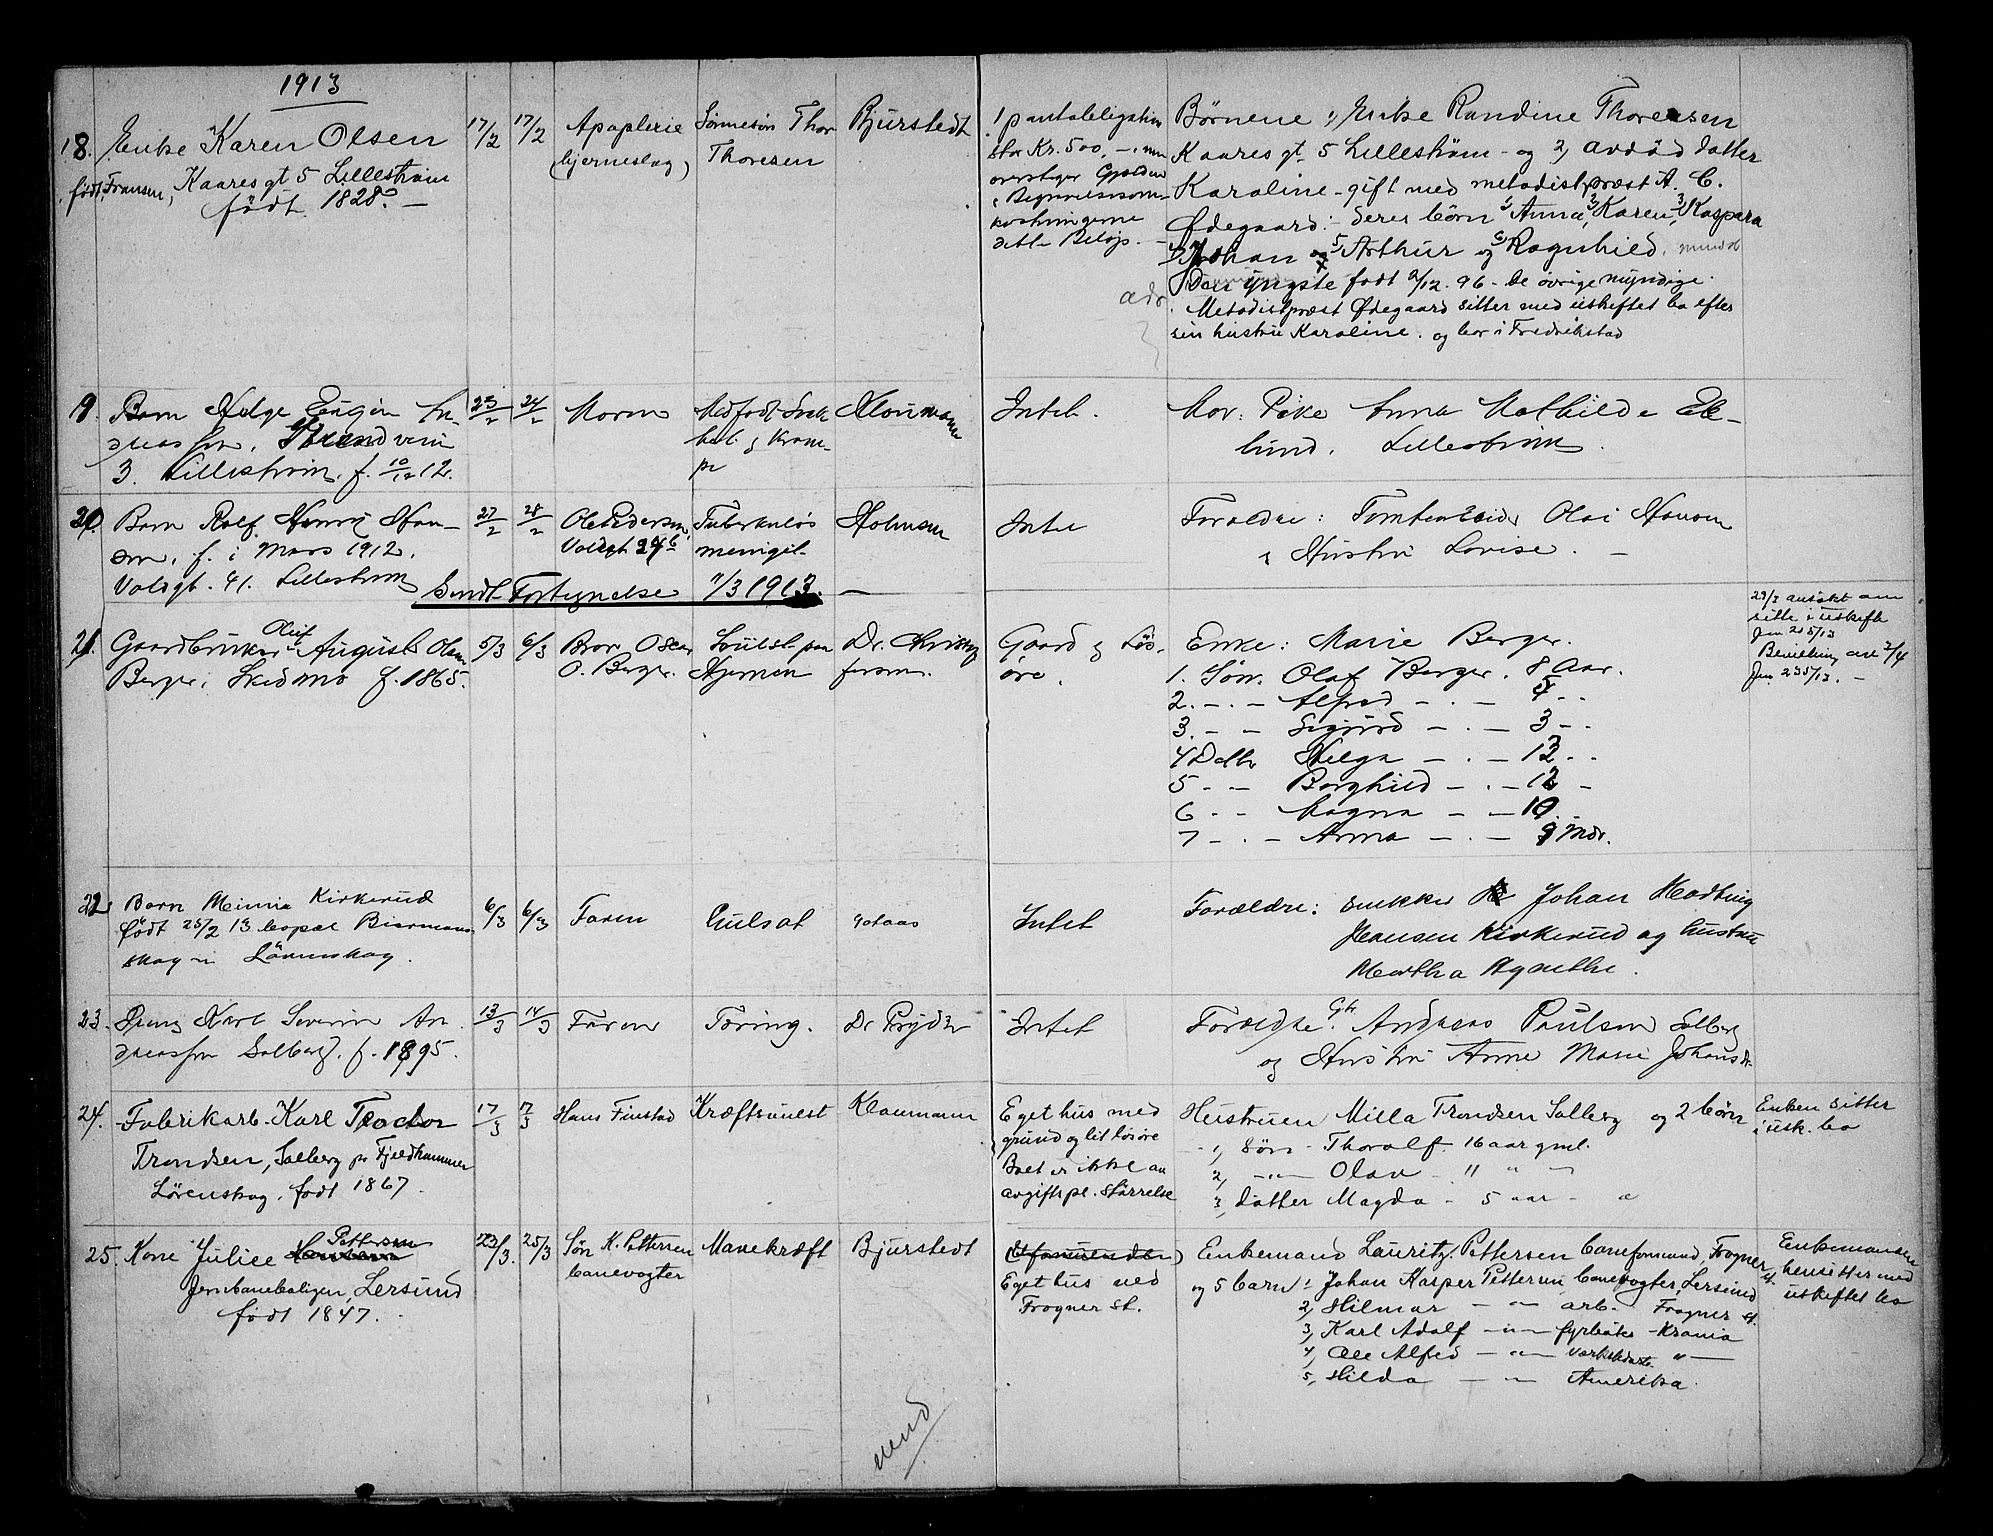 1913
18. Enke Karen Olsen 17/2 17/2 Apoplexie Sønnesøn Thor Bjurstedt
født Fransen, Kaares gt 5 Lillestrøm (hjerneslag) Thoresen
født 1828? —
1 pantobligation
stor Kr. 500, —, men
overstiger Gjælden
Begravelsesom-
kostningerne
dette Beløp. —
Børnene: 1, Enke Randine Thoresen
Kaares gt 5 Lillestrøm - og 2, avdød datter
Karoline - gift med metodistpræst A. C.
Ødegaard: deres børn 1, Anna, 2, Karen, 3, Kaspara
4, Johan og 5, Arthur og 6, Ragnhild.
Den yngste født 9/12. 96 - de øvrige myndige.
Metodistpræst Ødegaard sitter med uskiftet bo efter
sin hustru Karoline. og bor i Fredrikstad
19. Barn Helge Eugen An- 23/2 24/2 Moren Medfødt Svak
dreassen, Strandveien het og Kram-
3. Lillestrøm, f. 10/12 12. pe
Intet. Mor: Pike Anna Mathilde Ek-
lund. Lillestrøm.
20. Barn Rolf Henry Han- 27/2 28/2 Ole Pedersen Tuberkuløs Holmsen
sen, f. i Mars 1912. Voldgt 24b meningit
Voldgt. 41. Lillestrøm
Intet Forældre: Tomtearbeider Olai Hansen
& Hustru Lovise. —
Sendt Fortegnelse 1/3 1913. —
21. Gaardbruker Oluf August Olsen 5/3 6/3 Bror Oscar Svulst paa Dr. Christof
Berger, Skedsmo f. 1865. O. Berger. Hjernen fersen.
Gaard og Løs-
øre.
Enke: Marie Berger.
1. Søn. Olaf Berger. 8 Aar.
2. - . - Alfred - . - 5 - .
3. - - Sigurd - . - 3 - .
4 Datter Helga - . - 13 . .
5 . - Borghild - . - 12 -
6 . - Magna - - 10 .
7 - . - Anna - . - 9 Mdr.
29/3 ansøkt om
sitte i uskifte
Jnr 215/13
Bevilling av 2/4
Jnr. 235/13. —
22. Barn Minnie Kirkerud 6/3 6/3 Faren Gulsot Gotaas
født 25/2 13 bopæl Biermans
skog i Lørenskog.
Intet Forældre: snekker Johan Hartvig
Hansen Kirkerud og hustru
Martha Agnethe.
23. Dreng Karl Severin An- 13/3 14/3 Faren Tæring. Dr Prydz
dreassen Solberg. f. 1895.
Intet Forældre: Gbr. Andreas Paulsen Solberg
og Hustru Anne Marie Johansdr.
24. Fabrikarb. Karl Teodor 17/3 17/3 Hans Finstad Kræftsvulst Kloumann
Trondsen, Solberg pr Fjeldhammer
Lørenskog. født 1867.
Eget hus med
grund og lit løsøre
Boet er ikke av
avgiftspl. størrelse
Hustruen Milla Trondsen Solberg og 2 børn
1, Søn - Thoralf. 16 aar gml.
2, -"- Olav - 11 " -
3, datter Magda - 5 aar - "
Enken sitter
i usk. bo
25. Kone Julie Pettersen 23/3. 25/3 Søn K. Pettersen Mavekræft Bjurstedt
Jernbaneboligen, Lersund banevogter
født 1847.
(Uformuende)
Eget hus ved
Frogner st.
Enkemand Lauritz Pettersen baneformand, Frogner st.
og 5 barn: Johan Kasper Pettersen banevogter, Lersund
2, Hilmar - " - arb. Frogner st.
3, Karl Adolf - " - fyrbøter - Krania
4, Ole Alfred - " - værkstedsarb. " -
5, Hilda - " - Amerika.
Enkemanden
hensitter med
uskiftet bo